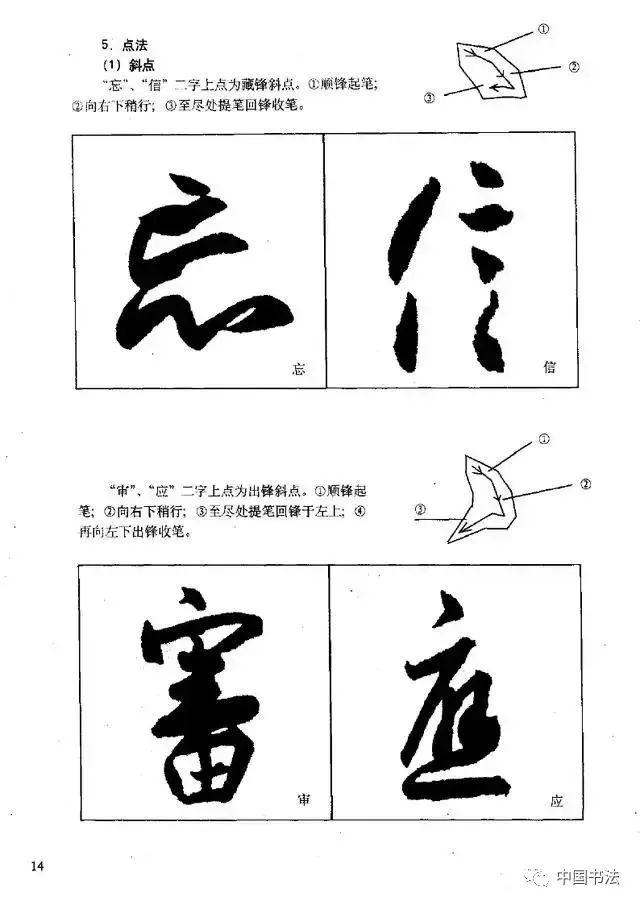 5．点法
（1）斜点
“忘”、“信”二字上点为藏锋斜点。①顺锋起笔；
②向右下稍行；③至尽处提笔回锋收笔。
①
②
③
忘
信
忘
信
“审”、“应”二字上点为出锋斜点。①顺锋起
笔；②向右下稍行；③至尽处提笔回锋于左上；④
再向左下出锋收笔。
①
②
③
審
應
审
应
14
中国书法